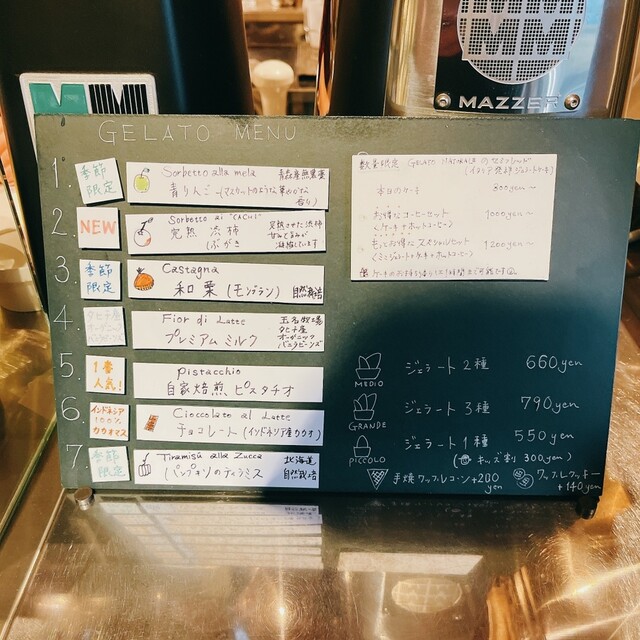 MAZZER
GELATO MENU
1. 季節限定
Sorbetto alla mela
青りんご
2. NEW
Sorbetto ai "CACHI"
完熟 渋柿
しぶがき
完熟させた渋柿
甘みと旨みが
凝縮しています
3. 季節限定
Castagna
和栗 (モンブラン) 自然栽培
4. タヒチ産
オーガニック
Fior di Latte
プレミアム ミルク
玉名牧場
タヒチ産
オーガニック
バニラビーンズ
5. 1番人気!
Pistacchio
自家焙煎 ピスタチオ
6. インドネシア
100%
カカオマス
Cioccolato al Latte
チョコレート (インドネシア産カカオ)
7. 季節限定
Tiramisù alla Zucca 北海道
(パンプキン)のティラミス 自然栽培
数量限定 GELATO
本日のケーキ 800yen~
お得なコーヒーセット 1000yen~
(ケーキ+ホットコーヒー)
もっとお得な スペシャルセット 1200yen~
(ミニジェラート+ケーキ+ホットコーヒー)
MEDIO ジェラート 2種 660yen
GRANDE ジェラート 3種 790yen
PICCOLO ジェラート 1種 550yen
(キッズ割 300yen)
手焼ワッフルコーン+200yen
ワッフルクッキー+140yen